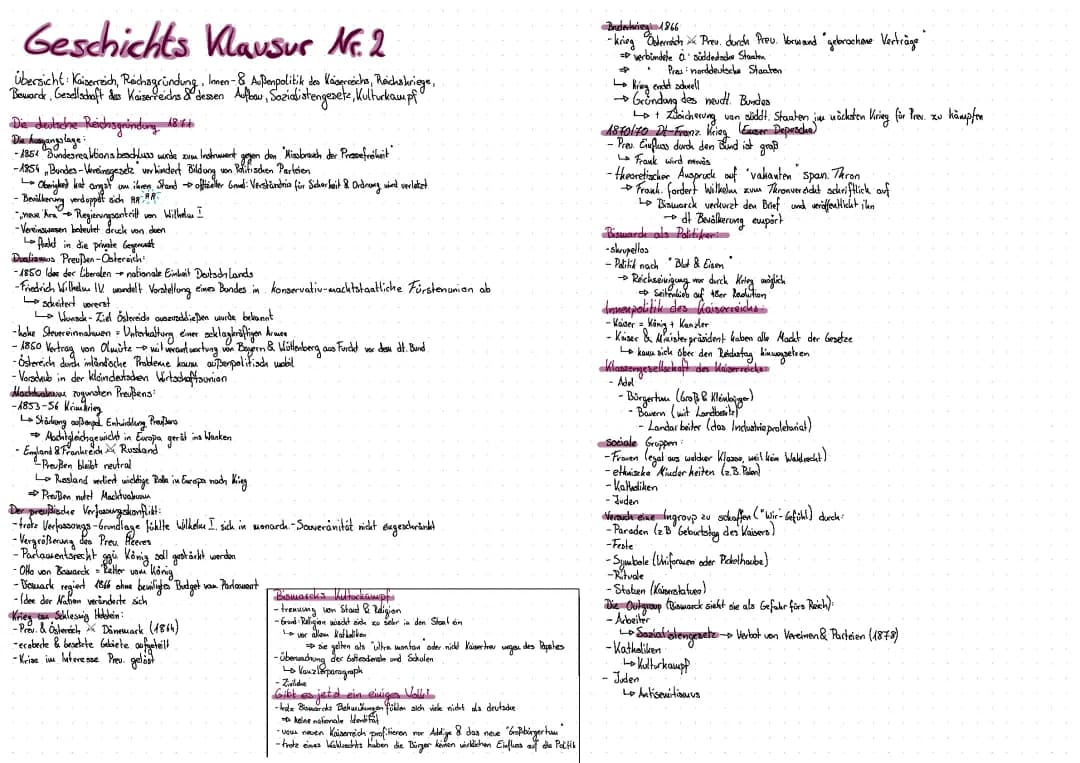 Geschichts Klausur Nr. 2
Übersicht: Kaiserreich, Reichsgründung, Innen- & Außenpolitik des Kaiserreichs, Reichskriege,
Bismarck, Gesellschaft des Kaiserreichs & dessen Aufbau, Sozialistengesetze, Kulturkampf
Die deutsche Reichsgründung 1871
Die Ausgangslage:
-1851 Bundesreaktionsbeschluss wurde zum Instrument gegen den "Missbrauch der Pressefreiheit"
-1854 „Bundes-Vereinsgesetz" verhindert Bildung von Politischen Parteien
↳ Obrigkeit hat angst um ihren Stand → offizieller Grund: Verständnis für Sicherheit & Ordnung wird verletzt
- Bevölkerung verdoppelt sich
-„neue Ära" → Regierungsantritt von Wilhelm I
- Vereinswesen bedeutet druck von oben
↳ flucht in die private Gegenwelt
Dualismus Preußen-Österreich:
-1850 Idee der Liberalen → nationale Einheit Deutschlands
-Friedrich Wilhelm IV wandelt Vorstellung eines Bundes in konservativ-machtstaatliche Fürstenunion ab
↳ scheitert vorerst
↳ Wunsch-Ziel Östereichs auszuschließen wurde bekannt
-hohe Steuereinnahmen = Unterhaltung einer schlagkräftigen Armee
- 1850 Vertrag von Olmütz → mit verantwortung von Bayern & Württenberg aus Furcht vor dem dt. Bund
-Östereich durch inländische Probleme kaum außenpolitisch mobil
-Vorschub in der kleindeutschen Wirtschaftsunion
Machtvakuum zugunsten Preußens:
-1853-56 Krimkrieg
↳ Stärkung außenpol. Entwicklung Preußens
⇒ Machtgleichgewicht in Europa gerät ins Wanken
- England & Frankreich ⚔ Russland
- Preußen bleibt neutral
↳ Russland verliert wichtige Rolle in Europa nach Krieg
⇒ Preußen nutzt Machtvakuum
Der preußische Verfassungskonflikt:
-trotz Verfassungs-Grundlage fühlte Wilhelm I. sich in monarch.-Souveränität nicht eingeschränkt
-Vergrößerung des Preu. Heeres
- Parlamentsrecht ggü König soll gestärkt werden
- Otto von Bismarck = Retter vom König
- Bismarck regiert 1866 ohne bewilligtes Budget vom Parlament
-Idee der Nation veränderte sich
Krieg um Schleswig Holstein:
-Preu. & Östereich ⚔ Dänemark (1864)
-eroberte & besetzte Gebiete aufgeteilt
-Krise im Interesse Preu. gelöst
Bismarcks Kulturkampf:
-trennung von Staat & Religion
-Grund: Religion mischt sich zu sehr in den Staat ein
↳ vor allem Katholiken
⇒ sie gelten als "ultra montan" oder nicht Kaisertreu wegen des Papstes
-Überwachung der Gottesdienste und Schulen
↳ Kanzelparagraph
- Zivilehe
Gibt es jetzt ein einiges Volk?
-trotz Bismarcks Bemühungen fühlen sich viele nicht als deutsche
⇒ keine nationale Identität
-vom neuen Kaiserreich profitieren nur Adlige & das neue "Großbürgertum"
-trotz eines Wahlrechts haben die Bürger keinen wirklichen Einfluss auf die Politik
Bruderkrieg: 1866
-krieg Österreich ⚔ Preu. durch Preu. Vorwand "gebrochene Verträge"
⇒ verbündete Ö: süddeutsche Staaten
⇒ " Preu: norddeutsche Staaten
↳ Krieg endet schnell
→ Gründung des neudt. Bundes
↳ + Zusicherung von süddt. Staaten im nächsten Krieg für Preu. zu kämpfen
1870/70 Dt-Franz. Krieg (Emser Depesche)
- Preu. Einfluss durch den Bund ist groß
↳ Frank wird nervös
-theoretischer Anspruch auf "vakanten" Span. Thron
→ Frank. fordert Wilhelm zum Thronverzicht schriftlich auf
↳ Bismarck verkürzt den Brief und veröffentlicht ihn
→ dt Bevölkerung empört
Bismarck als Politiker:
-skrupellos
- Politik nach "Blut & Eisen"
→ Reichseinigung nur durch Krieg möglich
⇒ Seitenhieb auf 48er Revolution
Innenpolitik des Kaiserreichs:
-Kaiser = König + Kanzler
- Kaiser & Ministerpräsident haben alle Macht der Gesetze
↳ kann sich über den Reichstag hinwegsetzen
Klassengesellschaft des Kaiserreichs:
- Adel
- Bürgertum (Groß & Kleinbürger)
- Bauern (mit Landbesitz)
- Landarbeiter (das Industrieproletariat)
soziale Gruppen:
-Frauen (egal aus welcher Klasse, weil kein Wahlrecht)
-ethnische Minderheiten (z.B. Polen)
-Katholiken
-Juden
Versuch eine Ingroup zu schaffen ("Wir-Gefühl) durch:
-Paraden (z.B Geburtstag des Kaisers)
-Feste
-Symbole (Uniformen oder Pickelhaube)
-Rituale
-Statuen (Kaiserstatuen)
Die Outgroup (Bismarck sieht sie als Gefahr fürs Reich):
- Arbeiter
↳ Sozialistengesetz → Verbot von Vereinen & Parteien (1878)
-Katholiken
↳ Kulturkampf
- Juden
↳ Antisemitismus